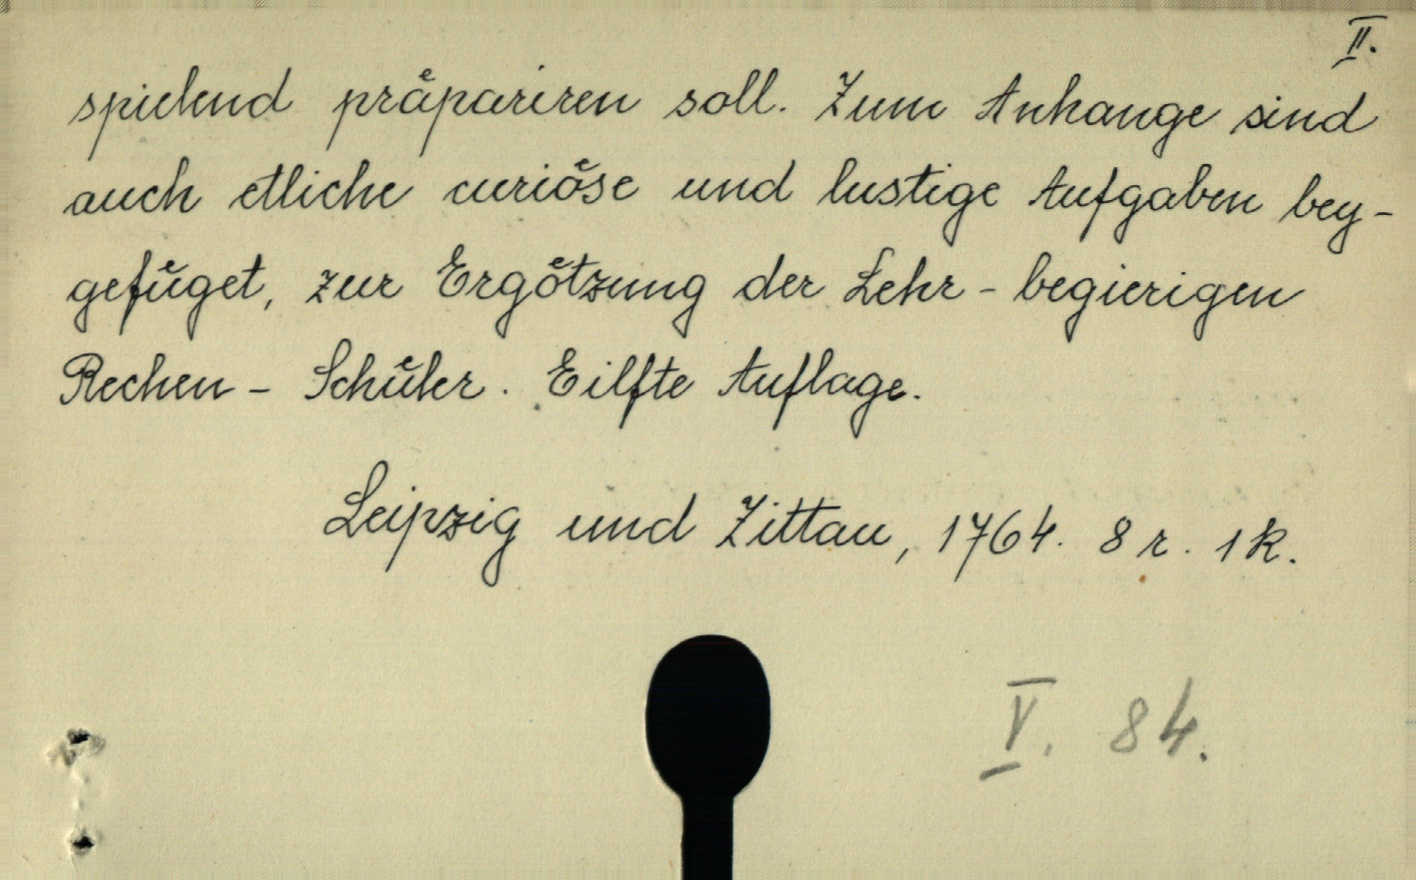 II.
spielend präpariren soll. Zum Anhange sind
auch etliche curiöse und lustige Aufgaben bey-
gefüget, zur Ergötzung der Lehr-begierigen
Rechen-Schüler. Eilfte Auflage.
Leipzig und Zittau, 1764. 8 r. 1 k.
V. 84.